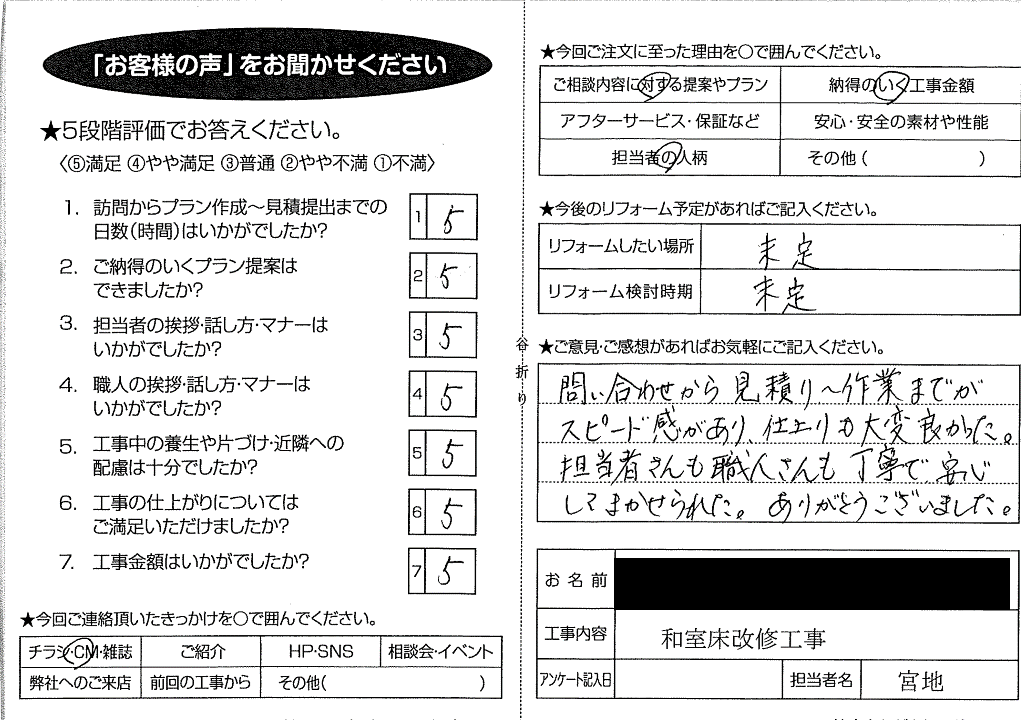 「お客様の声」をお聞かせください
★5段階評価でお答えください。
〈⑤満足 ④やや満足 ③普通 ②やや不満 ①不満〉
1. 訪問からプラン作成～見積提出までの
日数(時間)はいかがでしたか?
1 5
2. ご納得のいくプラン提案は
できましたか?
2 5
3. 担当者の挨拶・話し方・マナーは
いかがでしたか?
3 5
4. 職人の挨拶・話し方・マナーは
いかがでしたか?
4 5
5. 工事中の養生や片づけ・近隣への
配慮は十分でしたか?
5 5
6. 工事の仕上がりについては
ご満足いただけましたか?
6 5
7. 工事金額はいかがでしたか?
7 5
★今回ご連絡頂いたきっかけを○で囲んでください。
チラシ・CM・雑誌 ご紹介 HP・SNS 相談会・イベント
弊社へのご来店 前回の工事から その他( )
谷折り
★今回ご注文に至った理由を○で囲んでください。
ご相談内容に対する提案やプラン 納得のいく工事金額
アフターサービス・保証など 安心・安全の素材や性能
担当者の人柄 その他( )
★今後のリフォーム予定があればご記入ください。
リフォームしたい場所 未定
リフォーム検討時期 未定
★ご意見・ご感想があればお気軽にご記入ください。
問い合わせから見積り～作業までが
スピード感があり、仕上りも大変良かった。
担当者さんも職人さんも丁寧で、安心
してまかせられた。ありがとうございました。
お名前
工事内容 和室床改修工事
アンケート記入日 担当者名 宮地